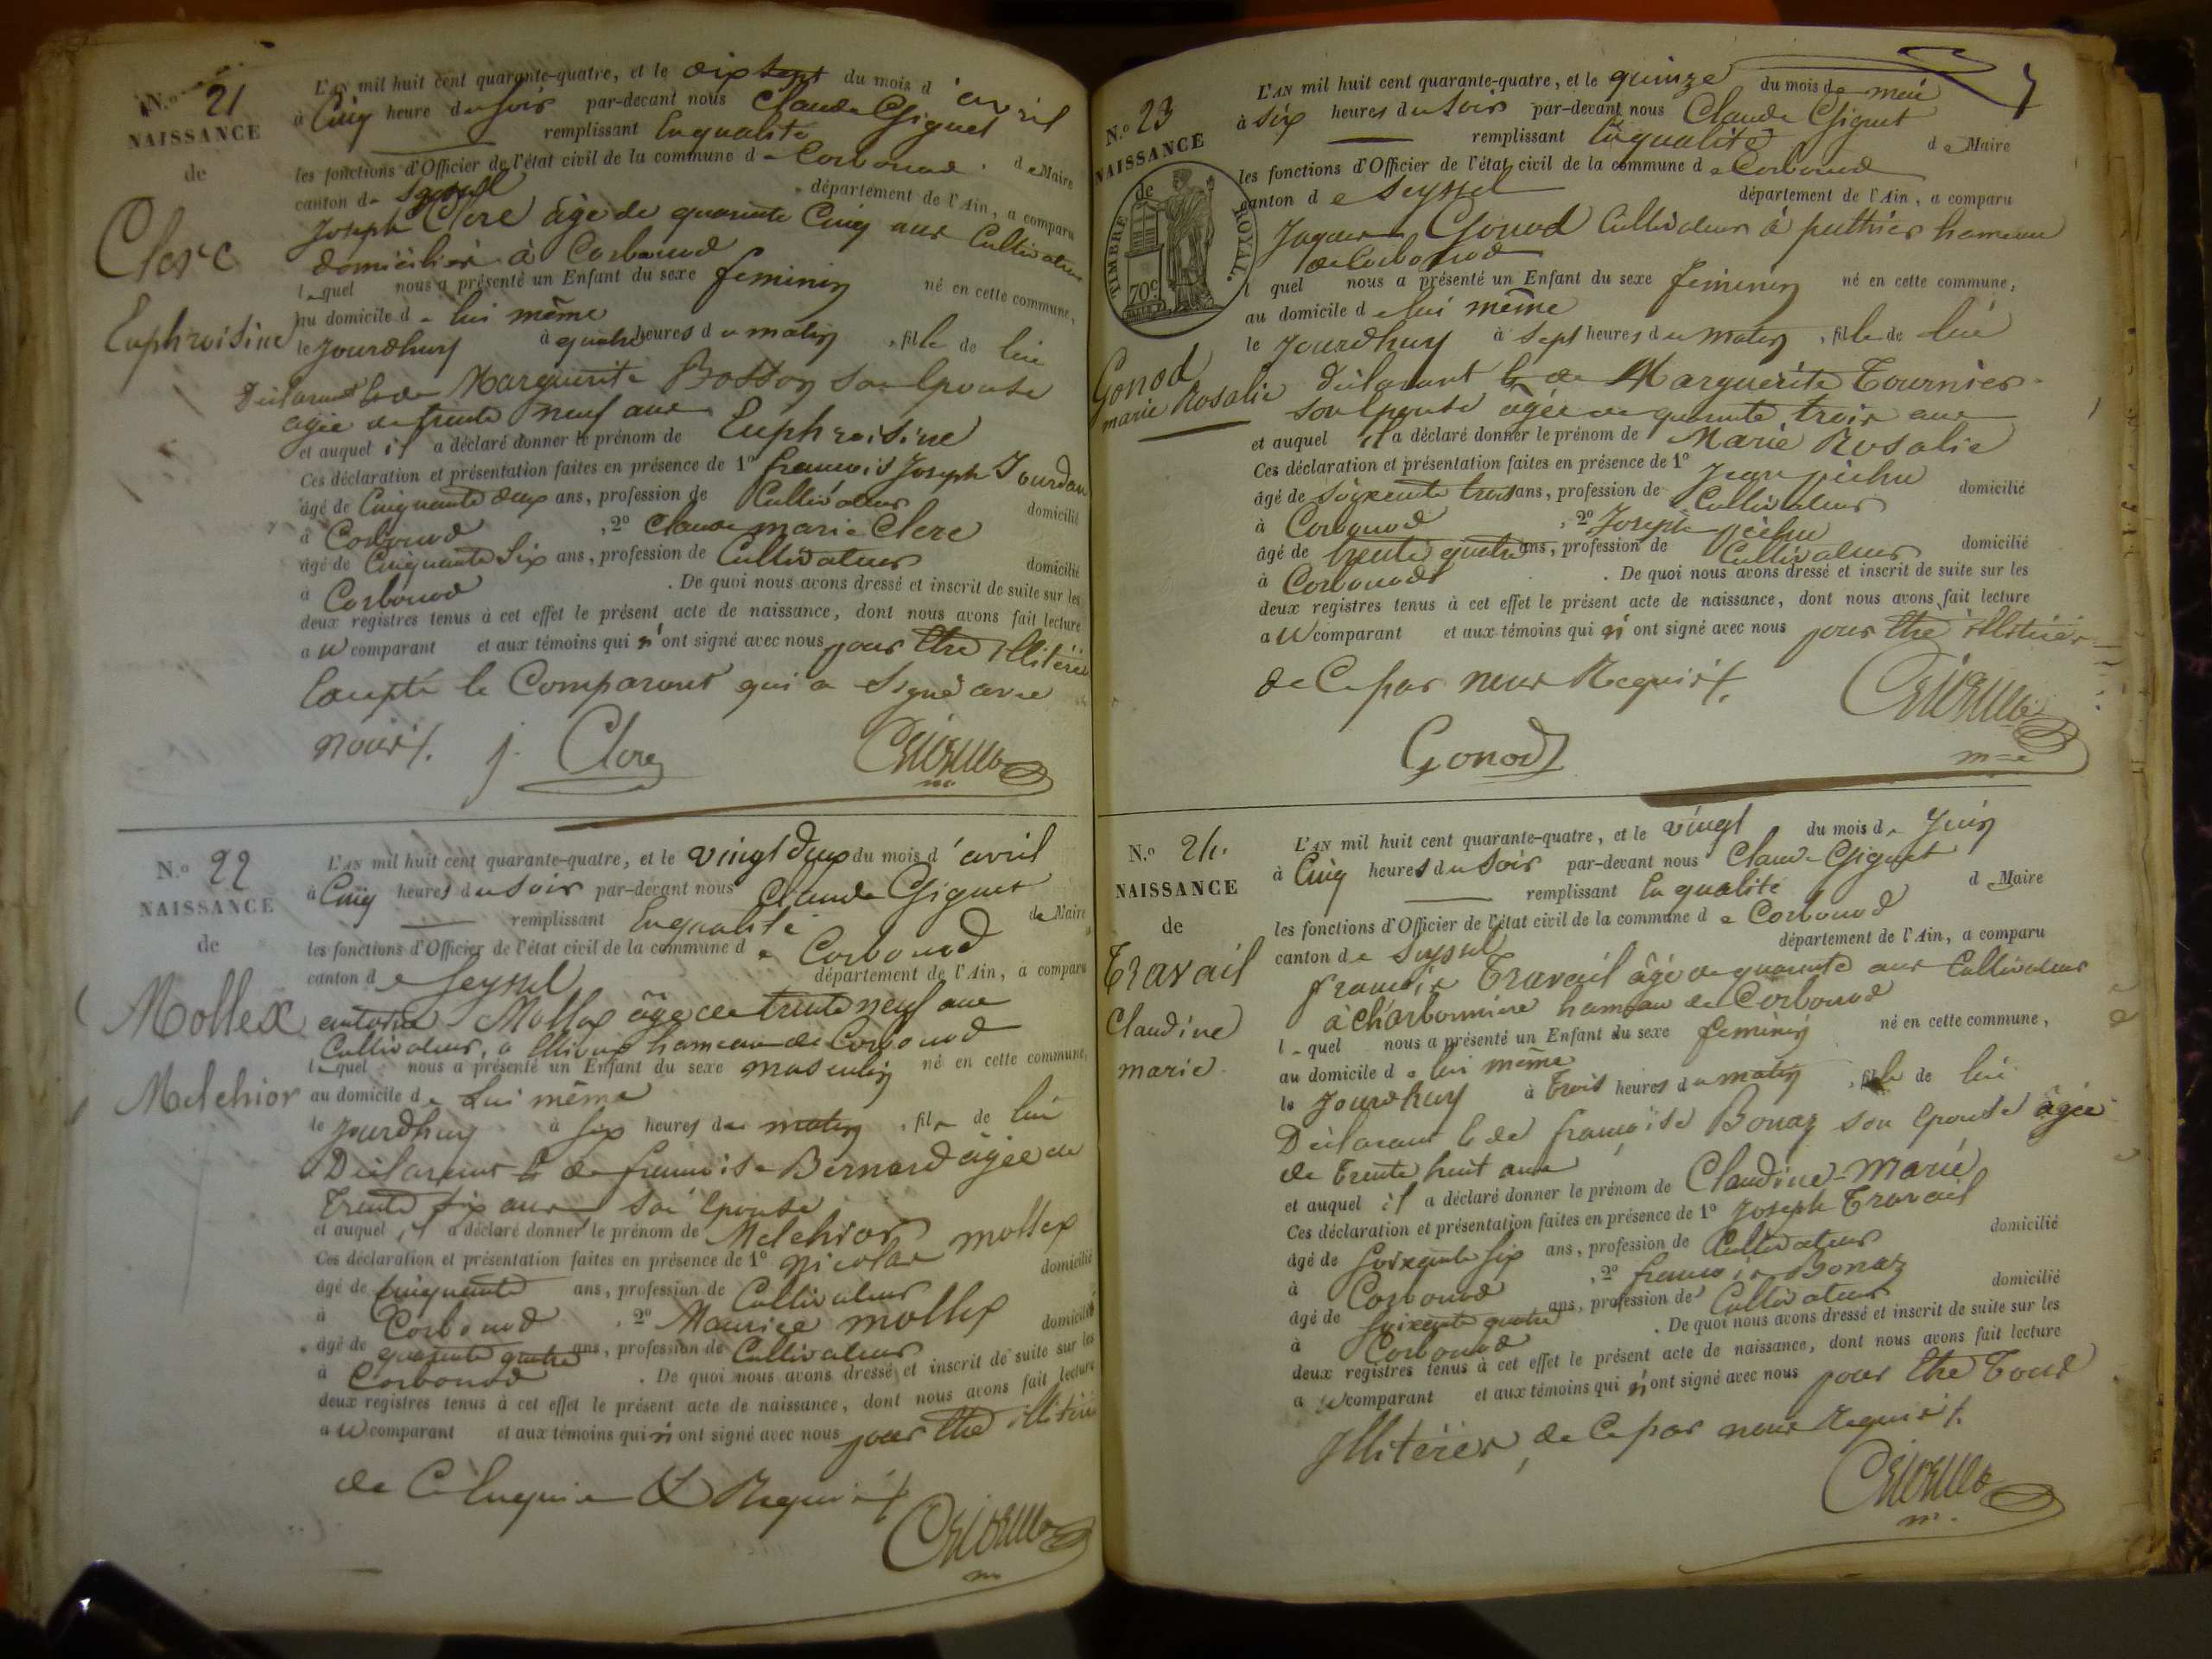 N.º 21
NAISSANCE
de
Clerc
Euphroisine
L'AN mil huit cent quarante-quatre, et le dix sept du mois d'avril
à Cinq heure du soir par-devant nous Claude Giguet
remplissant En qualité de Maire
les fonctions d'Officier de l'état civil de la commune de Corbonod
canton de Seyssel département de l'Ain, a comparu
Joseph Clerc âgé de quarante Cinq ans Cultivateur
domicilier à Corbonod
lequel nous a présenté un Enfant du sexe feminin né en cette commune,
au domicile de lui même
le Jourdhuy à quatre heures du matin, fille de lui
Déclarant & de Marguerite Bosson son Epouse
agée de trente neuf ans
et auquel il a déclaré donner le prénom de Euphroisine
Ces déclaration et présentation faites en présence de 1º francois Joseph Jourdan
âgé de Cinquante deux ans, profession de Cultivateur domicilié
à Corbonod, 2º Claude marie Clerc
âgé de Cinquante Six ans, profession de Cultivateur domicilié
à Corbonod. De quoi nous avons dressé et inscrit de suite sur les
deux registres tenus à cet effet le présent acte de naissance, dont nous avons fait lecture
au comparant et aux témoins qui n'ont signé avec nous pour Etre illitéré
Excepté le Comparant qui a Signé avec
nous
j. Clerc
N.º 22
NAISSANCE
de
Mollex
Melchior
L'AN mil huit cent quarante-quatre, et le vingt deux du mois d'avril
à Cinq heures du soir par-devant nous Claude Giguet
remplissant En qualité de Maire
les fonctions d'Officier de l'état civil de la commune de Corbonod
canton de Seyssel département de l'Ain, a comparu
antoine Mollex âgé de trente neuf ans
Cultivateur, a hameau de Corbonod
lequel nous a présenté un Enfant du sexe masculin né en cette commune,
au domicile de Lui même
le jourdhuy à six heures du matin, fils de lui
Déclarant & de francoise Bernard âgée de
trente six ans son Epouse
et auquel il a déclaré donner le prénom de Melchior
Ces déclaration et présentation faites en présence de 1º Nicolas mollex
âgé de Cinquante ans, profession de Cultivateur domicilié
à Corbonod, 2º Maurice mollex
âgé de quarante quatre ans, profession de Cultivateur domicilié
à Corbonod. De quoi nous avons dressé et inscrit de suite sur les
deux registres tenus à cet effet le présent acte de naissance, dont nous avons fait lecture
au comparant et aux témoins qui n'ont signé avec nous pour Etre illitéré
de Ce Enquis & Requis
N.º 23
NAISSANCE
de
TIMBRE ROYAL.
70c
Gonod
marie Rosalie
L'AN mil huit cent quarante-quatre, et le quinze du mois de mai
à six heures du soir par-devant nous Claude Giguet
remplissant En qualité de Maire
les fonctions d'Officier de l'état civil de la commune de Corbonod
canton de Seyssel département de l'Ain, a comparu
Jaques Gonod Cultivateur à puthier hameau
de Corbonod
l quel nous a présenté un Enfant du sexe feminin né en cette commune,
au domicile de lui même
le Jourdhuy à sept heures du matin, fille de lui
déclarant & de Marguerite Tournier
son Epouse âgée de quarante trois ans
et auquel il a déclaré donner le prénom de Marie Rosalie
Ces déclaration et présentation faites en présence de 1º Jean
âgé de soixente trois ans, profession de Cultivateur domicilié
à Corbonod, 2º Joseph
âgé de trente quatre ans, profession de Cultivateur domicilié
à Corbonod. De quoi nous avons dressé et inscrit de suite sur les
deux registres tenus à cet effet le présent acte de naissance, dont nous avons fait lecture
au comparant et aux témoins qui n'ont signé avec nous pour Etre illitérés
de Ce par nous Requis
Gonod
N.º 24.
NAISSANCE
de
Travail
Claudine
marie
L'AN mil huit cent quarante-quatre, et le vingt du mois de Juin
à Cinq heures du soir par-devant nous Claude Giguet
remplissant En qualité de Maire
les fonctions d'Officier de l'état civil de la commune de Corbonod
canton de Seyssel département de l'Ain, a comparu
francois Travail âgé de quarante ans Cultivateur
à Charbonniere hameau de Corbonod
lequel nous a présenté un Enfant du sexe feminin né en cette commune,
au domicile de lui même
le Jourdhuy à trois heures du matin, fille de lui
Déclarant & de francoise Bonaz son Epouse âgée
de trente huit ans
et auquel il a déclaré donner le prénom de Claudine-Marie
Ces déclaration et présentation faites en présence de 1º Joseph Travail
âgé de soixante six ans, profession de Cultivateur domicilié
à Corbonod, 2º francois Bonaz
âgé de soixente quatre ans, profession de Cultivateur domicilié
à Corbonod. De quoi nous avons dressé et inscrit de suite sur les
deux registres tenus à cet effet le présent acte de naissance, dont nous avons fait lecture
au comparant et aux témoins qui n'ont signé avec nous pour Etre tous
Illitérés, de Ce par nous Requis